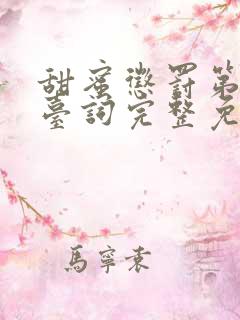 甜蜜懲罰第
臺詞完整免
馬寧袁